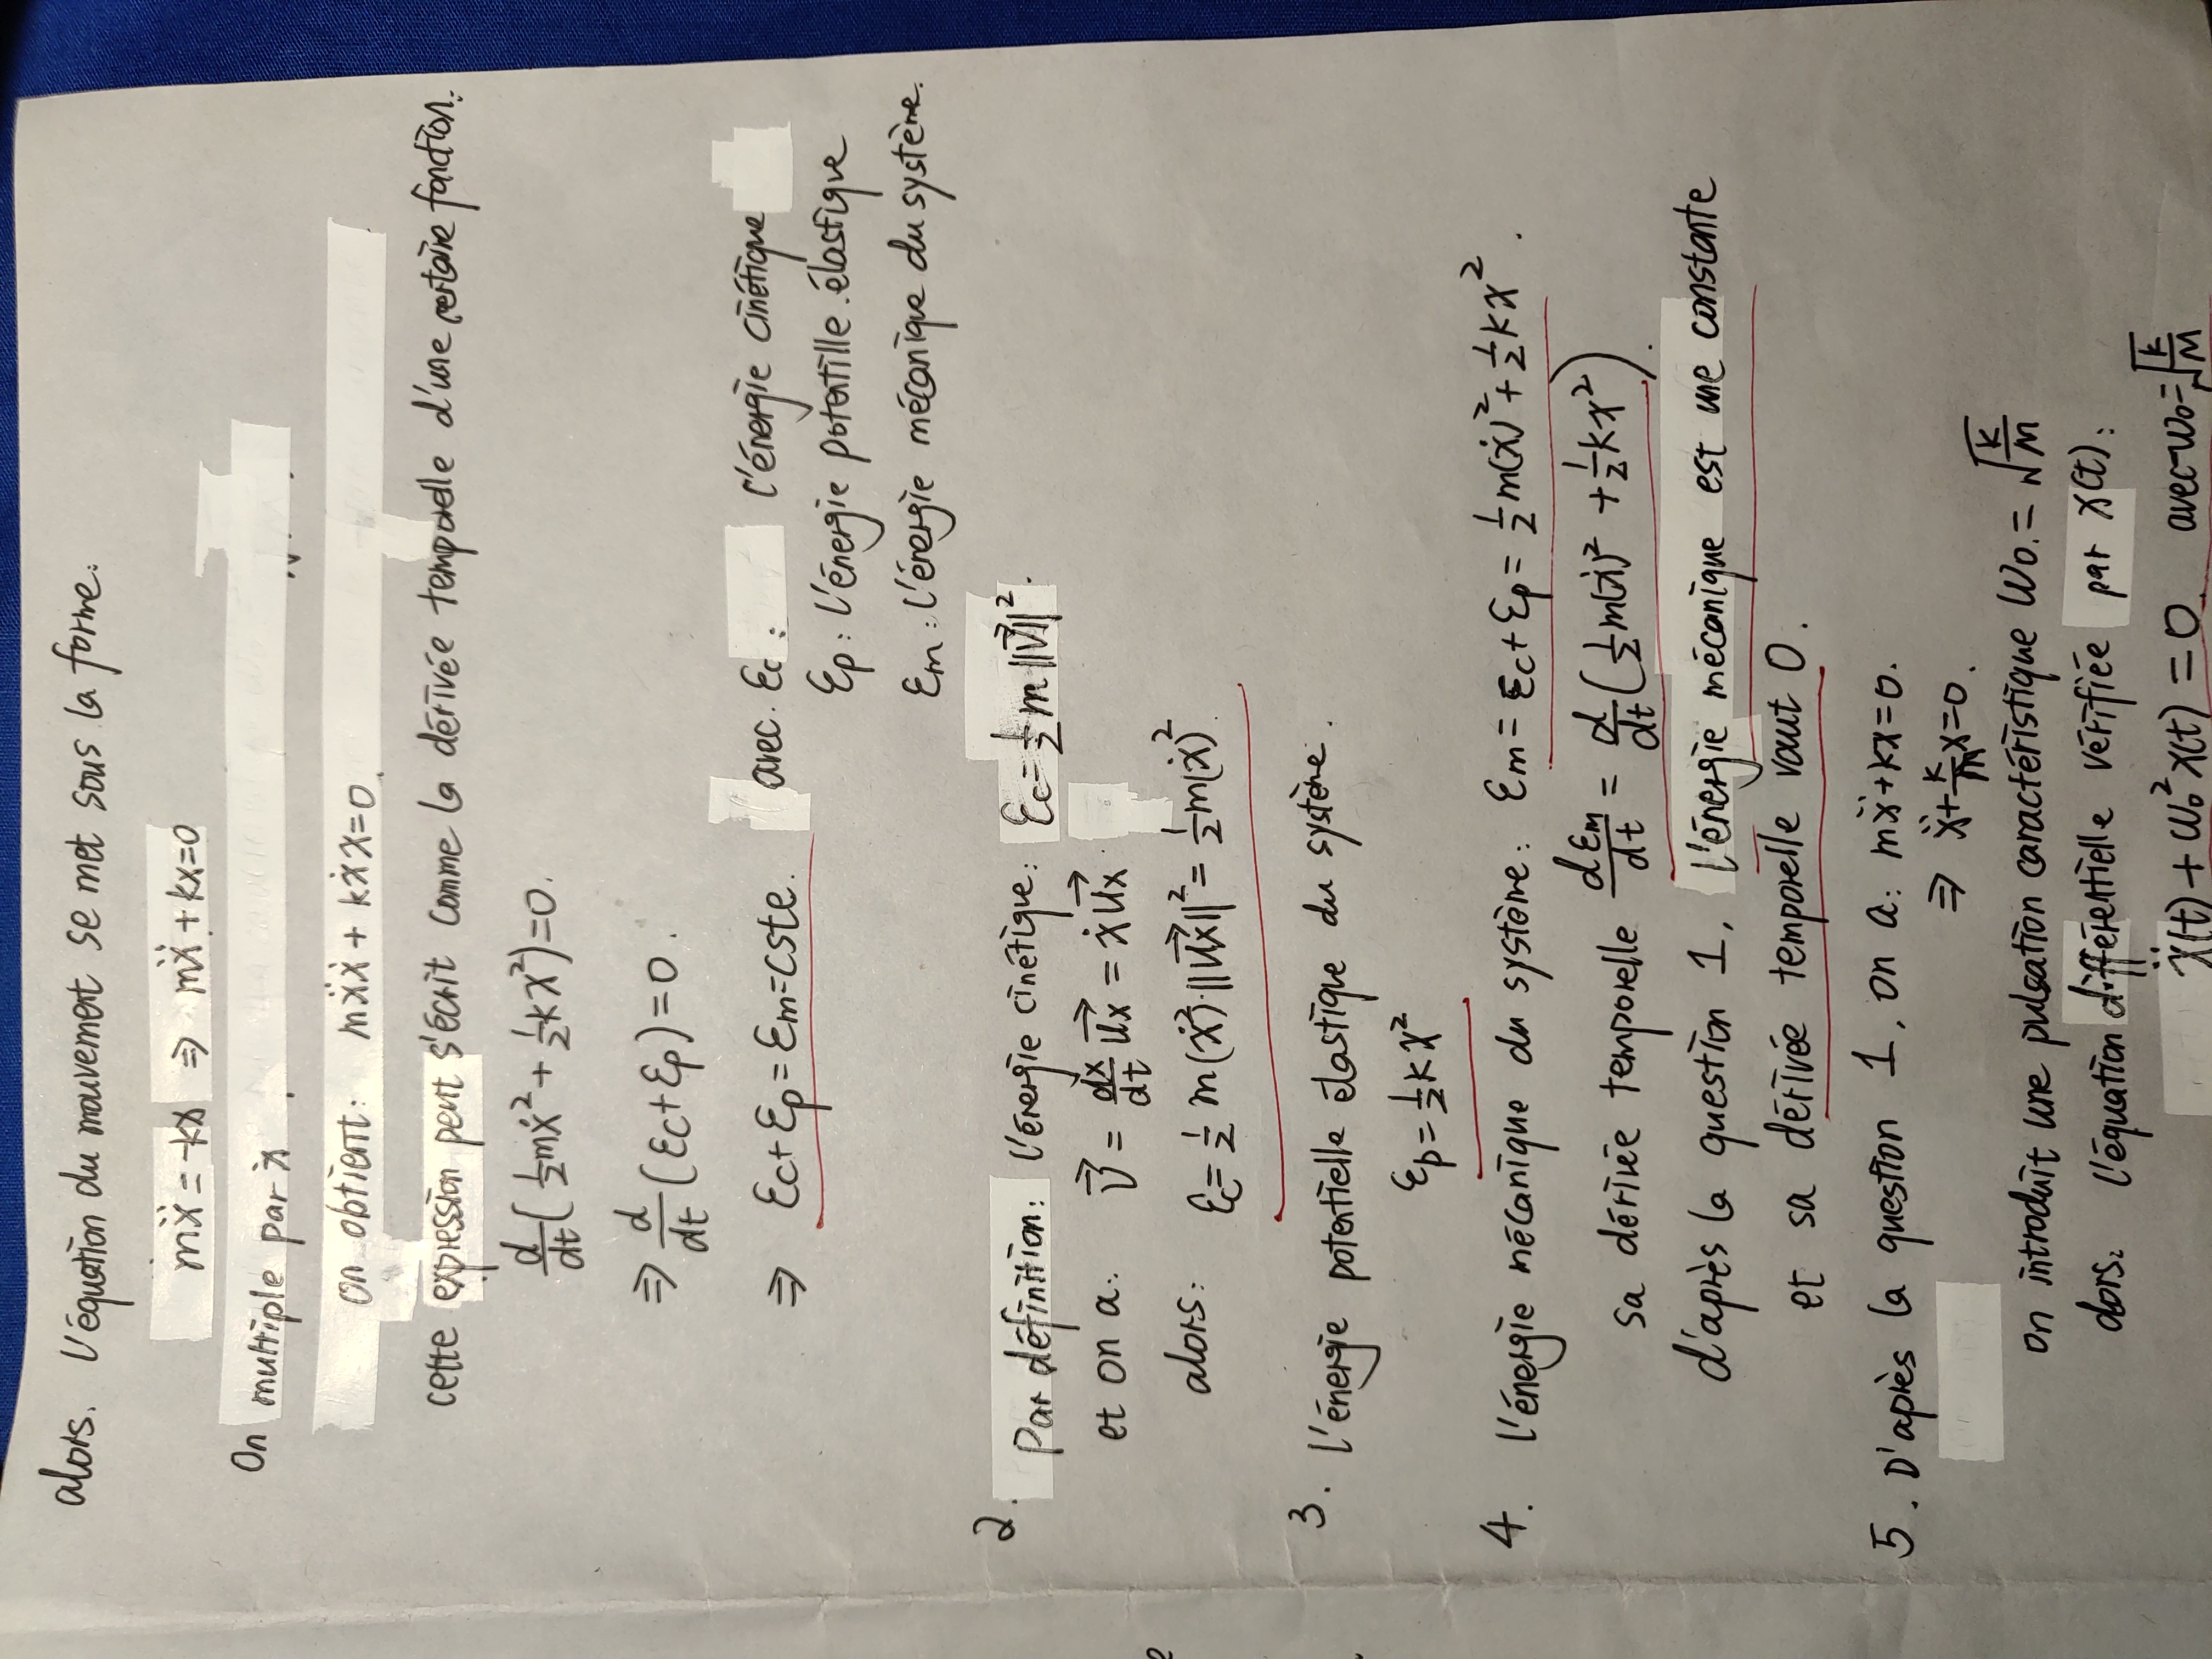 alors. l'équation du mouvement se met sous la forme:
mẍ = -kx ⇒ mẍ + kx=0
On multiple par ẋ
on obtient: mẍẋ + kẋx=0.
cette expression peut s'écrit comme la dérivée temporelle d'une certaine fonction.
d/dt( ½mẋ² + ½kx²)=0.
⇒ d/dt (Ec+Ep)=0.
⇒ Ec+Ep=Em=cste. avec. Ec: l'énergie cinétique
Ep: l'énergie potentille élastique
Em: l'énergie mécanique du système.
2. Par définition: l'énergie cinétique: Ec=½m||v⃗||².
et on a: v⃗ = dx/dt u⃗x = ẋu⃗x
alors: Ec=½ m(ẋ²)·||u⃗x||²= ½m(ẋ)².
3. l'énergie potentielle élastique du système.
Ep=½kx²
4. l'énergie mécanique du système: Em= Ec+Ep= ½m(ẋ)²+½kx².
sa dérivée temporelle dEm/dt = d/dt(½m(ẋ)² +½kx²).
d'après la question 1, l'énergie mécanique est une constante
et sa dérivée temporelle vaut 0.
5. D'après la question 1, on a: mẍ+kx=0.
⇒ ẍ+k/m x=0.
on introduit une pulsation caractéristique ω0.=√k/m
alors: l'équation différentielle vérifiée par x(t):
ẍ(t)+ω0²x(t)=0. avec ω0=√k/m